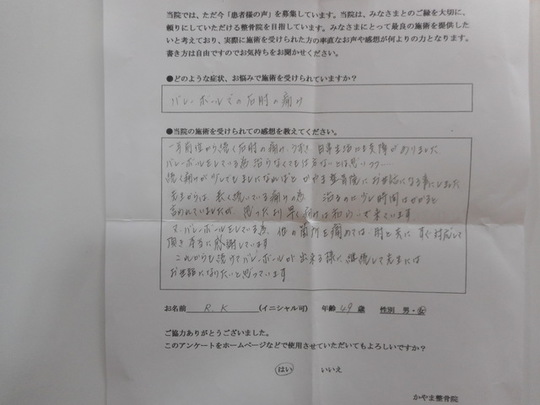 当院では、ただ今「患者様の声」を募集しています。当院は、みなさまとのご縁を大切に、
頼りにしていただける整骨院を目指しています。みなさまにとって最良の施術を提供した
いと考えており、実際に施術を受けられた方の率直なお声や感想が何よりの力となります。
書き方は自由ですのでお気持ちをお聞かせください。
●どのような症状、お悩みで施術を受けられていますか？
バレーボールでの右肘の痛み
●当院の施術を受けられての感想を教えてください。
一年前位から続く右肘の痛み、日常生活にも支障がありました
バレーボールをしている為 治らなくても仕方ないとは思いつつ…
続く痛みが少しでもましになればと かやま整骨院にお世話になる事にしました
先生からは、長く続いている痛みの為 治るのに少し時間はかかると
言われていましたが、思ったより早く痛みは和らいで来ています
又、バレーボールをしている為、他の箇所を痛めても、肘と共に すぐ対応して
頂き 本当に感謝しています
これからも続けてバレーボールが出来る様に、継続して先生には
お世話になりたいと思っています
お名前 R.K （イニシャル可） 年齢 49 歳 性別 男・女
ご協力ありがとうございました。
このアンケートをホームページなどで使用させていただいてもよろしいですか？
はい いいえ
かやま整骨院